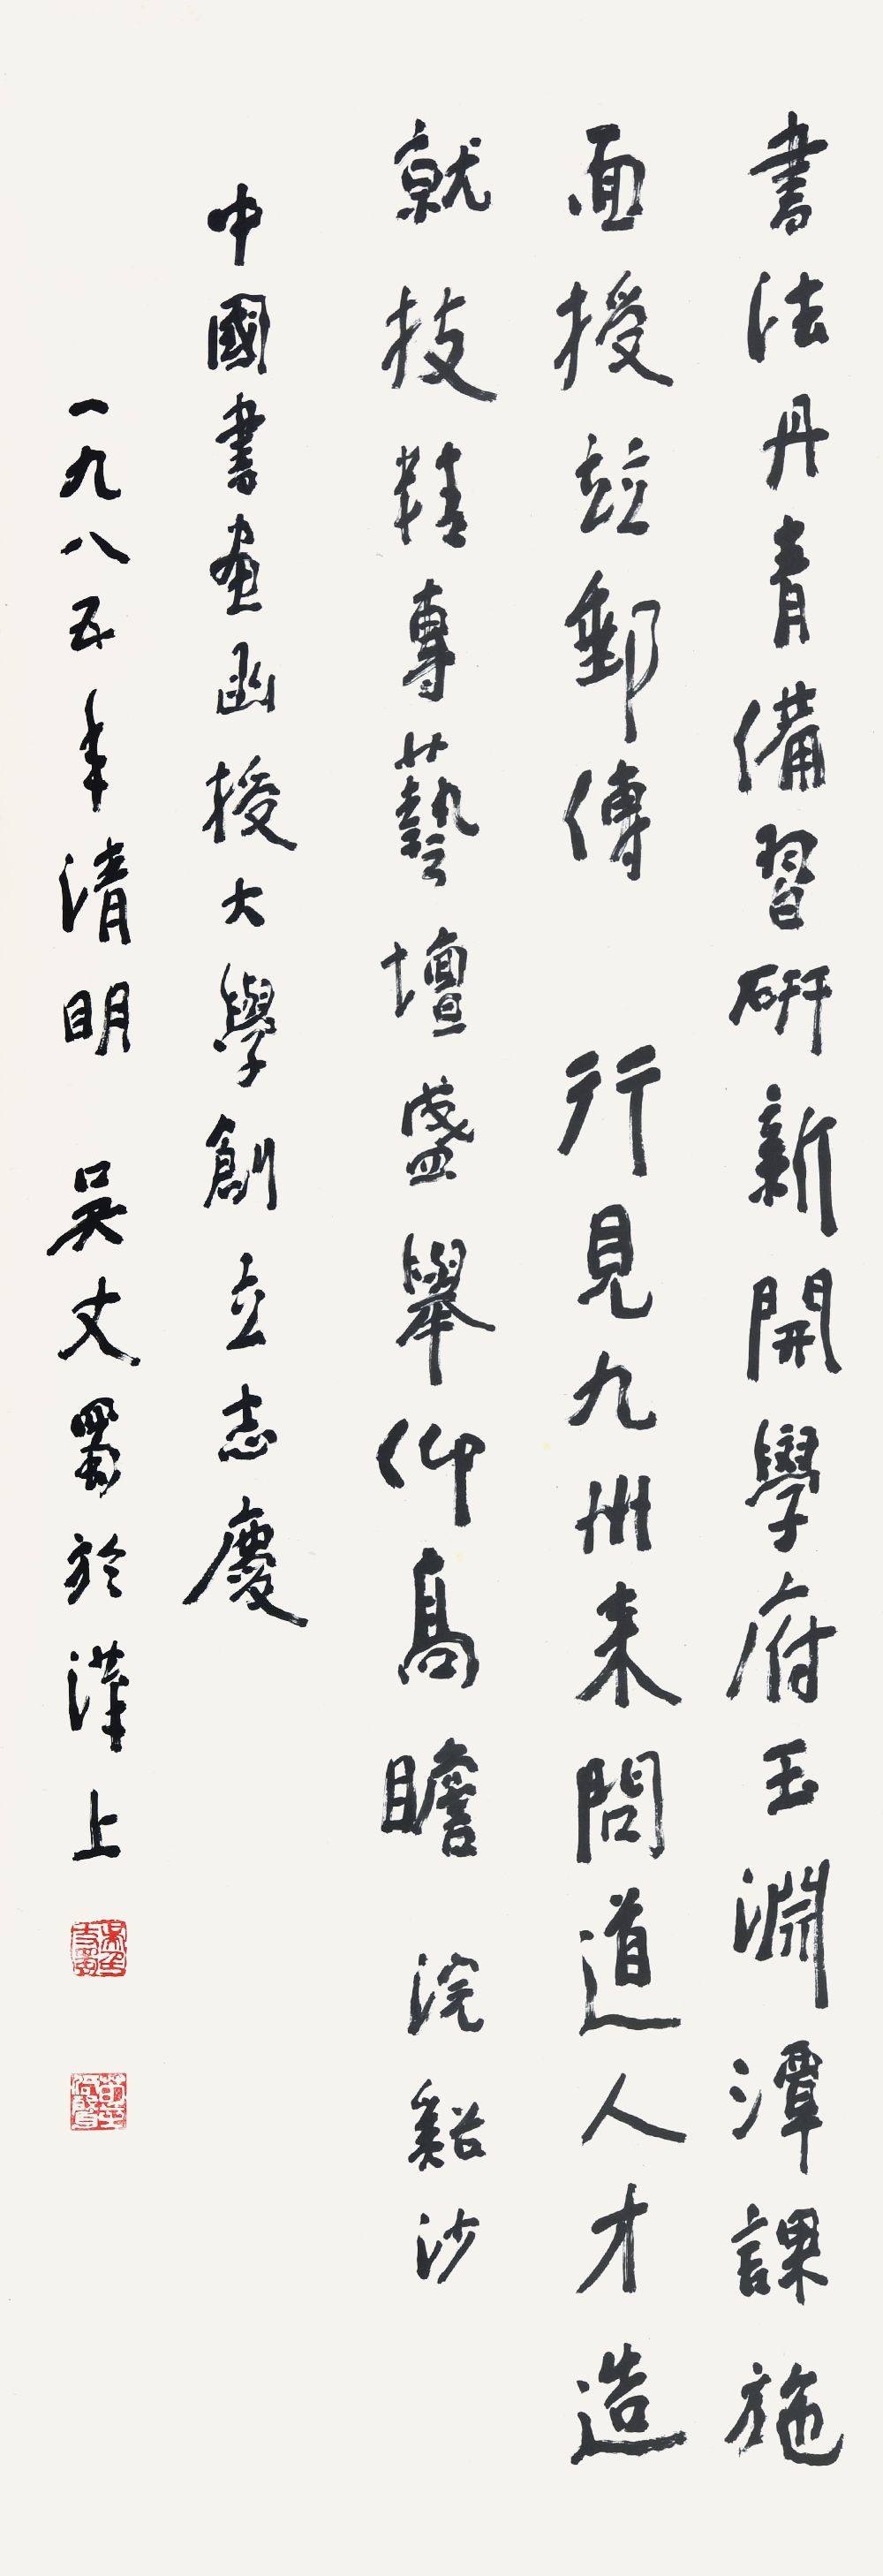 書法丹青備習研新開學府玉淵潭課施
面授竝郵傳 行見九州来問道人才造
就技精專藝壇盛舉仰高瞻 浣谿沙
中國書画函授大學創立志慶
一九八五年清明 吴丈蜀於漢上